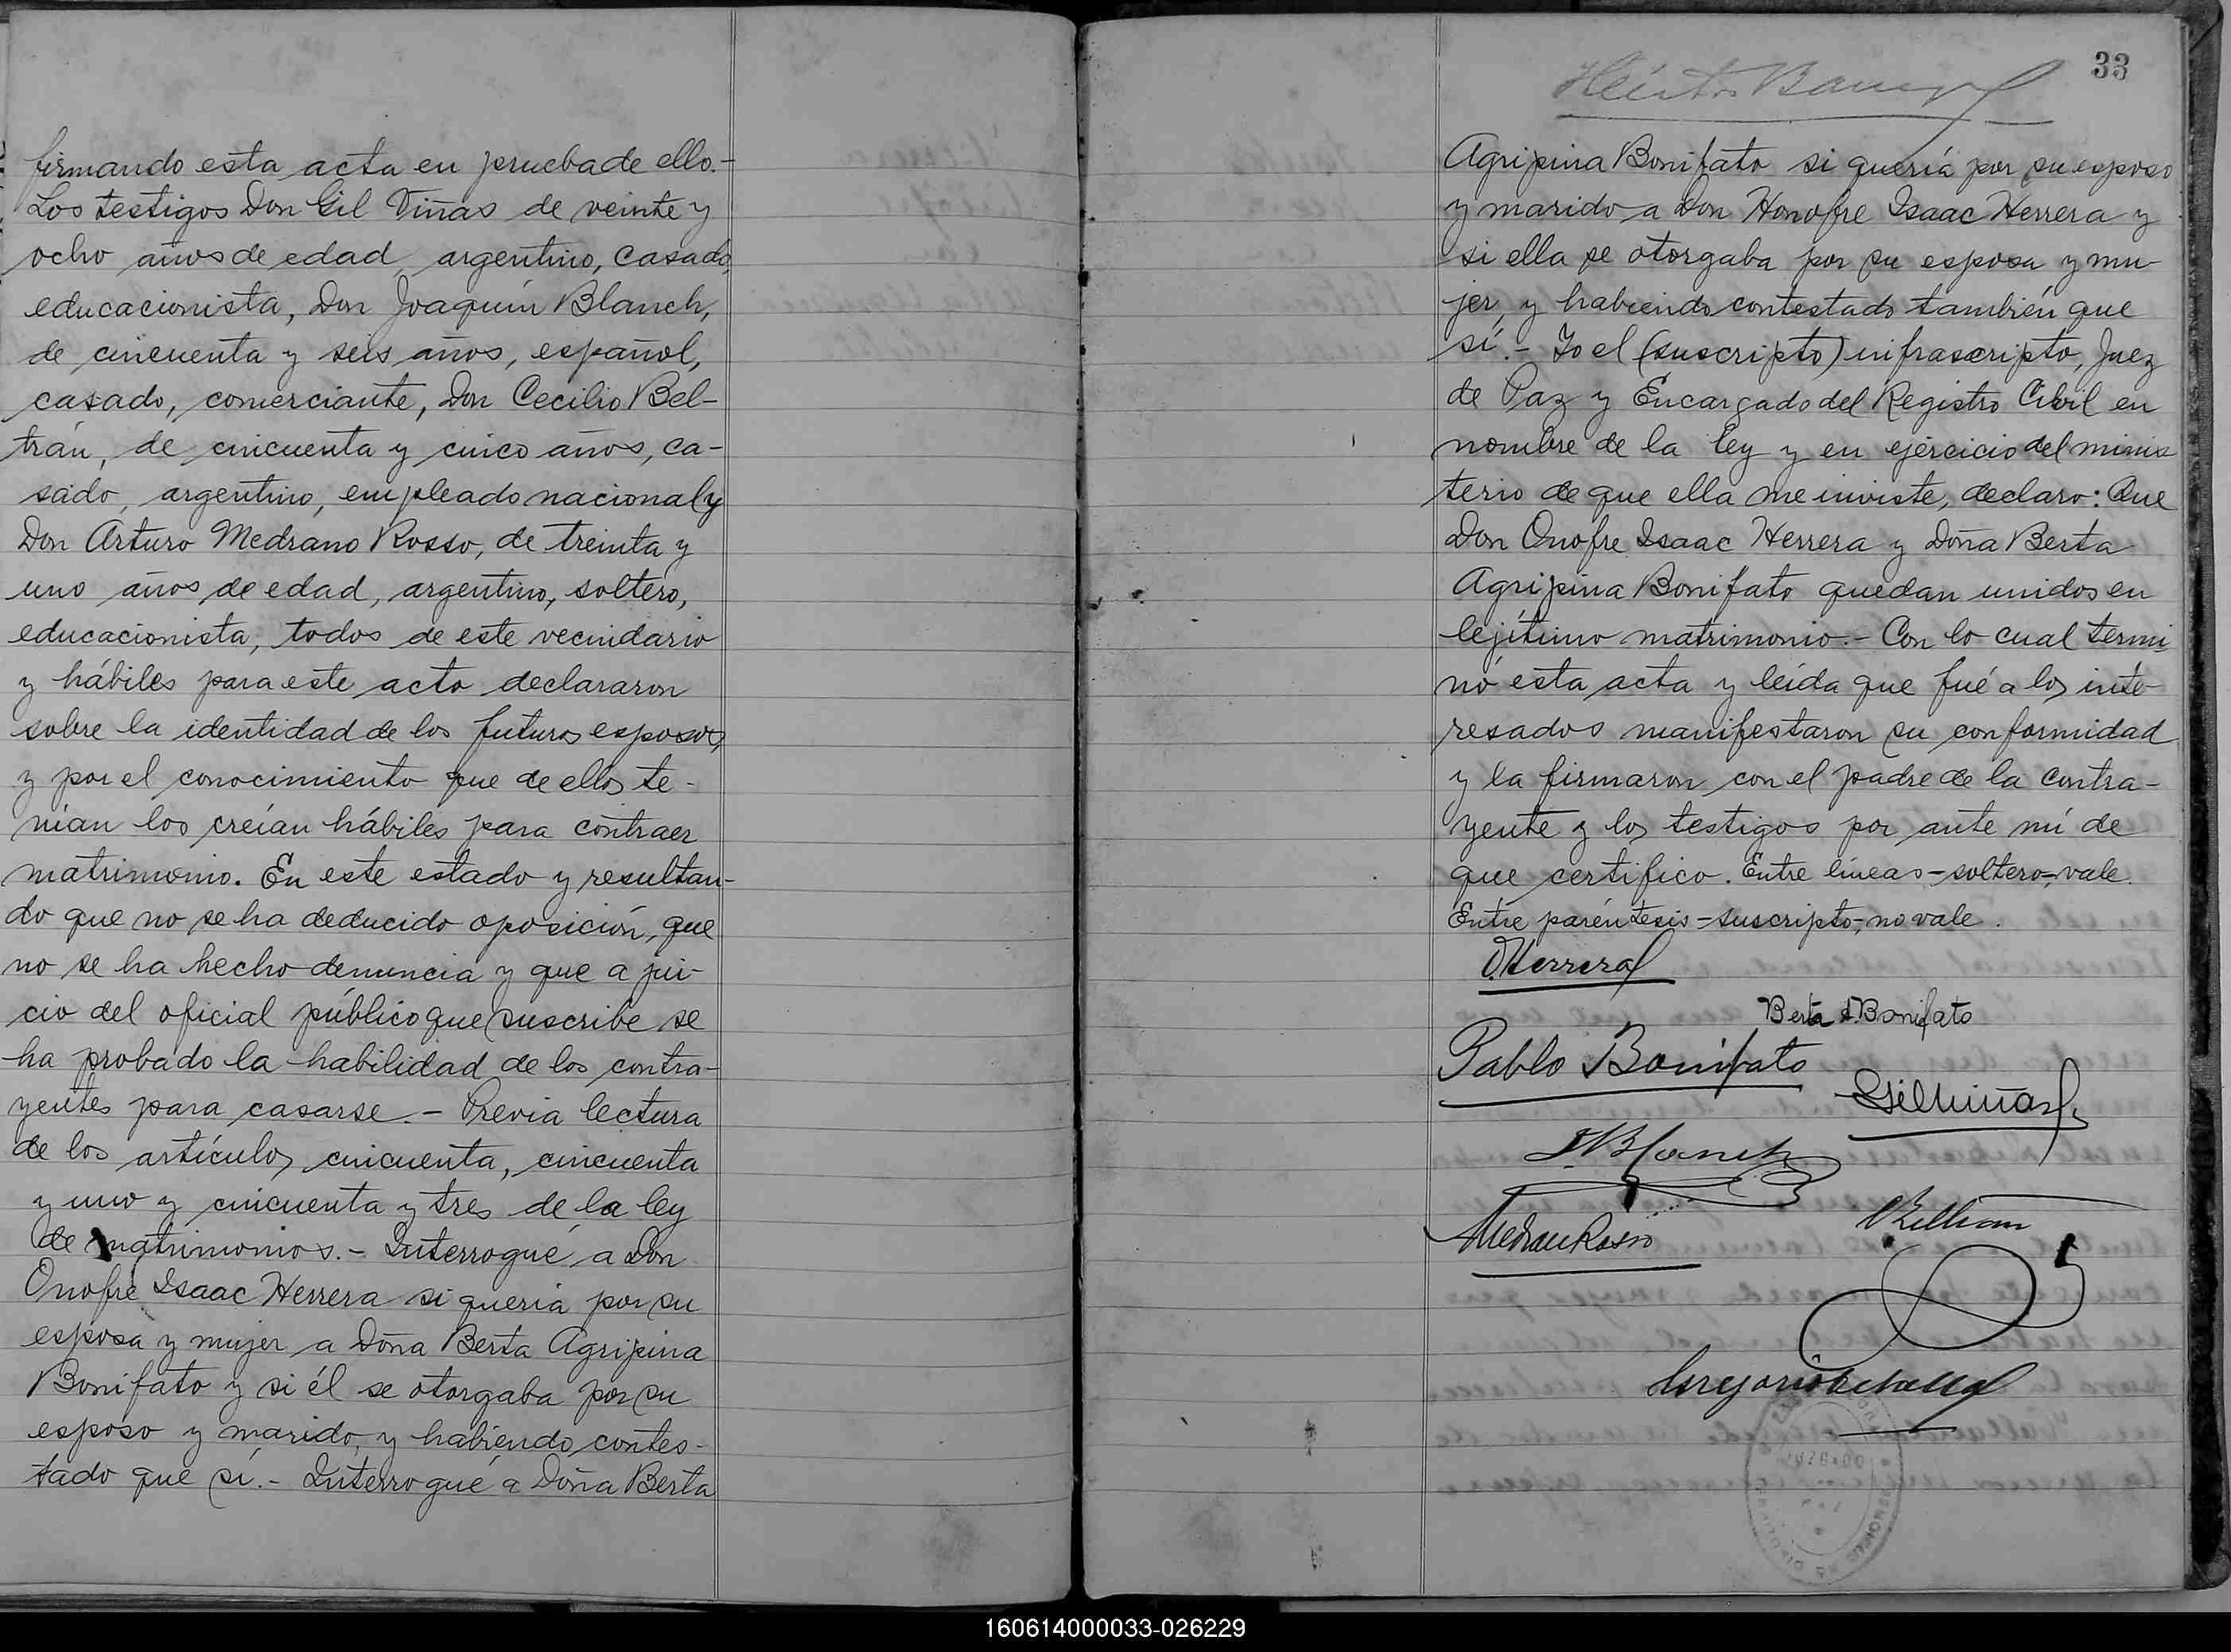 firmando esta acta en prueba de ello.-
Los testigos Don Gil Viñas de veinte y
ocho años de edad, argentino, casado,
educacionista, Don Joaquín Blanch,
de cincuenta y seis años, español,
casado, comerciante, Don Cecilio Bel-
trán, de cincuenta y cinco años, ca-
sado, argentino, empleado nacional y
Don Arturo Medrano Rosso, de treinta y
uno años de edad, argentino, soltero,
educacionista, todos de este vecindario
y hábiles para este acto declararon
sobre la identidad de los futuros esposos,
y por el conocimiento que de ellos te-
nían los creían hábiles para contraer
matrimonio. En este estado y resultan-
do que no se ha deducido oposición, que
no se ha hecho denuncia y que a jui-
cio del oficial público que suscribe se
ha probado la habilidad de los contra-
yentes para casarse.- Previa lectura
de los artículos, cincuenta, cincuenta
y uno y cincuenta y tres de la ley
de matrimonios.- Interrogué a Don
Onofre Isaac Herrera si quería por su
esposa y mujer a Doña Berta Agripina
Bonifato y si él se otorgaba por su
esposo y marido, y habiendo contes-
tado que sí.- Interrogué a Doña Berta
33
Agripina Bonifato si quería por su esposo
y marido a Don Honofre Isaac Herrera y
si ella se otorgaba por su esposa y mu-
jer, y habiendo contestado también que
sí.- Yo el (suscripto) infrascripto, Juez
de Paz y Encargado del Registro Civil en
nombre de la ley y en ejercicio del minis
terio de que ella me inviste, declaro: Que
Don Onofre Isaac Herrera y Doña Berta
Agripina Bonifato quedan unidos en
lejítimo matrimonio.- Con lo cual termi
nó esta acta y leída que fué a los inte-
resados manifestaron su conformidad
y la firmaron con el padre de la contra-
yente y los testigos por ante mí de
que certifico. Entre líneas-soltero-,vale.
Entre paréntesis-suscripto-,no vale.
O.Herrera
Berta A.Bonifato
Pablo Bonifato
Gil Viñas
J.Blanch
MedranoRosso
160614000033-026229